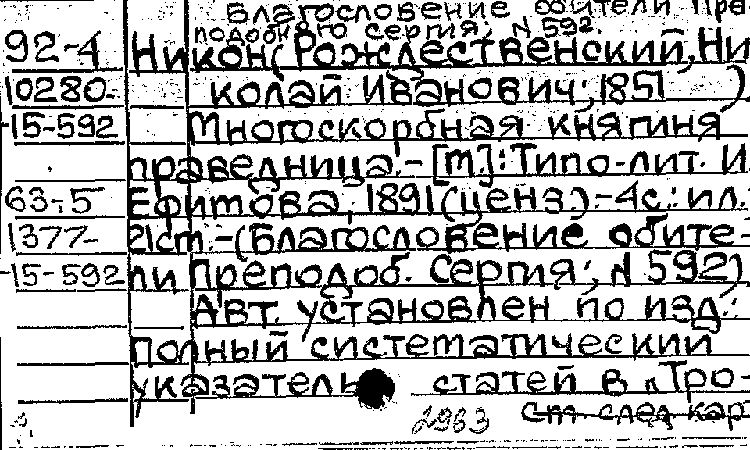 Благословение обители Пре-
подобного Сергия; N 592.
92-4 Никон (Рождественский, Ни
10280- колай Иванович; 1851 )
-15-592 Многоскорбная княгиня
праведница.-[М.]: Типо-лит. И.
63-5 Ефимова, 1891 (ценз).-4с.: ил.
1377- 21см.-(Благословение обите-
-15-592 ли Преподоб. Сергия; N 592)
Авт. установлен по изд.:
Полный систематический
указатель статей в "Тро-
2983 см след кар